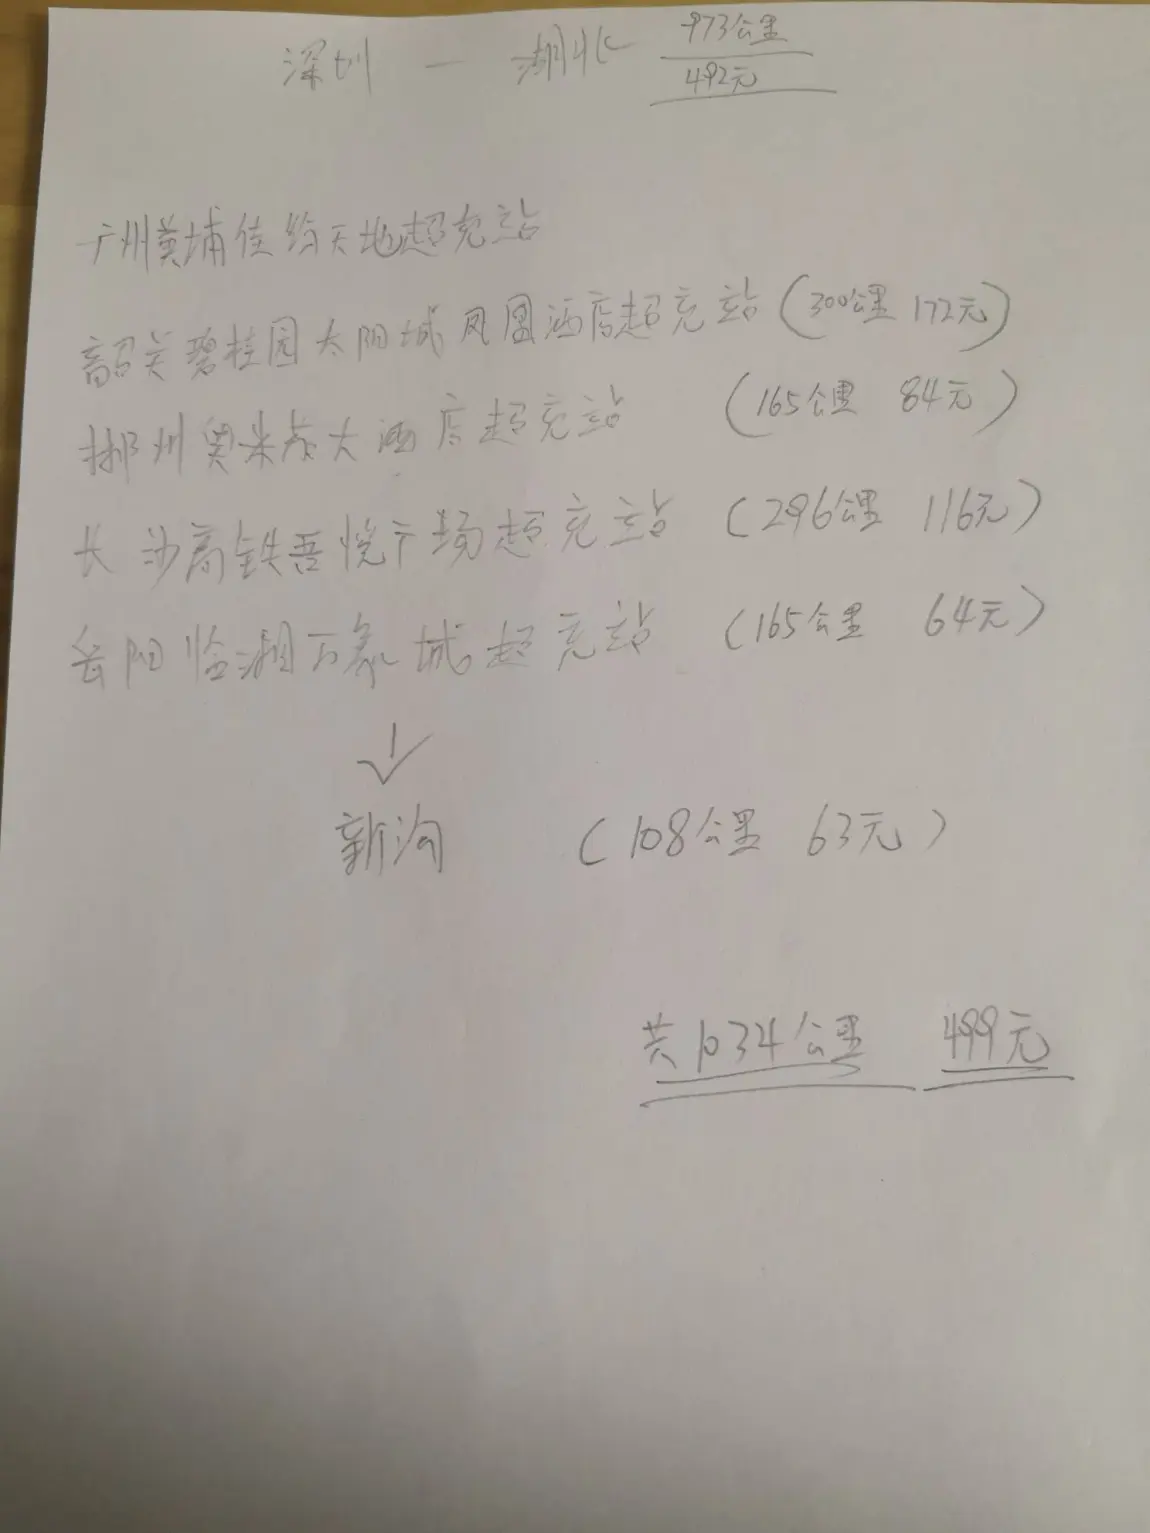 深圳 — 湖北 973公里
492元
广州黄埔佳纷天地超充站
韶关碧桂园太阳城凤凰酒店超充站 (300公里 172元)
郴州奥米茄大酒店超充站 (165公里 84元)
长沙高铁吾悦广场超充站 (296公里 116元)
岳阳临湘万象城超充站 (165公里 64元)
新沟 (108公里 63元)
共1034公里 499元